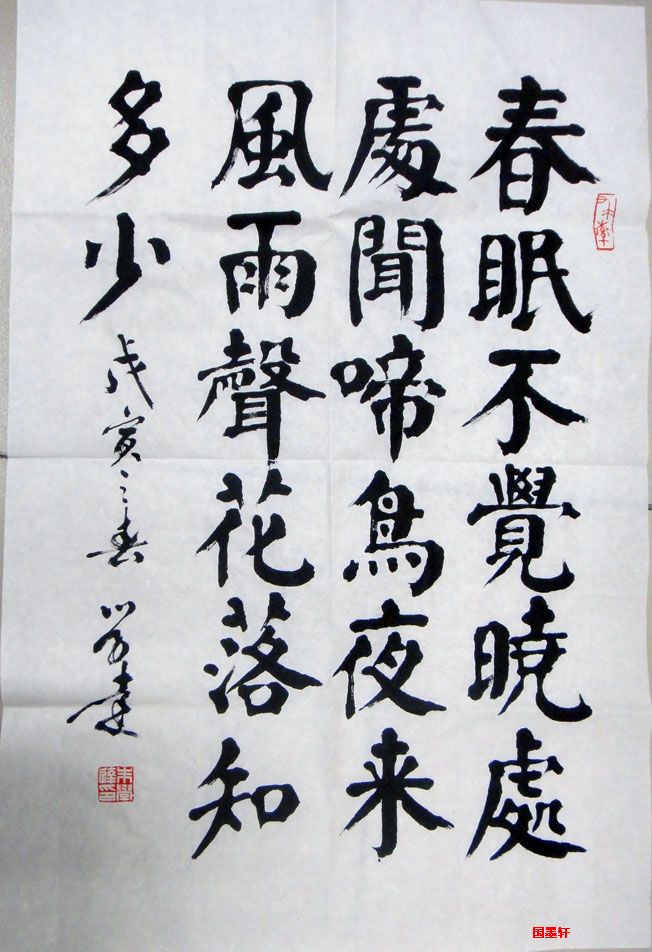 春眠不覺曉處
處聞啼鳥夜来
風雨聲花落知
多少
戊寅之春 学達
国墨轩